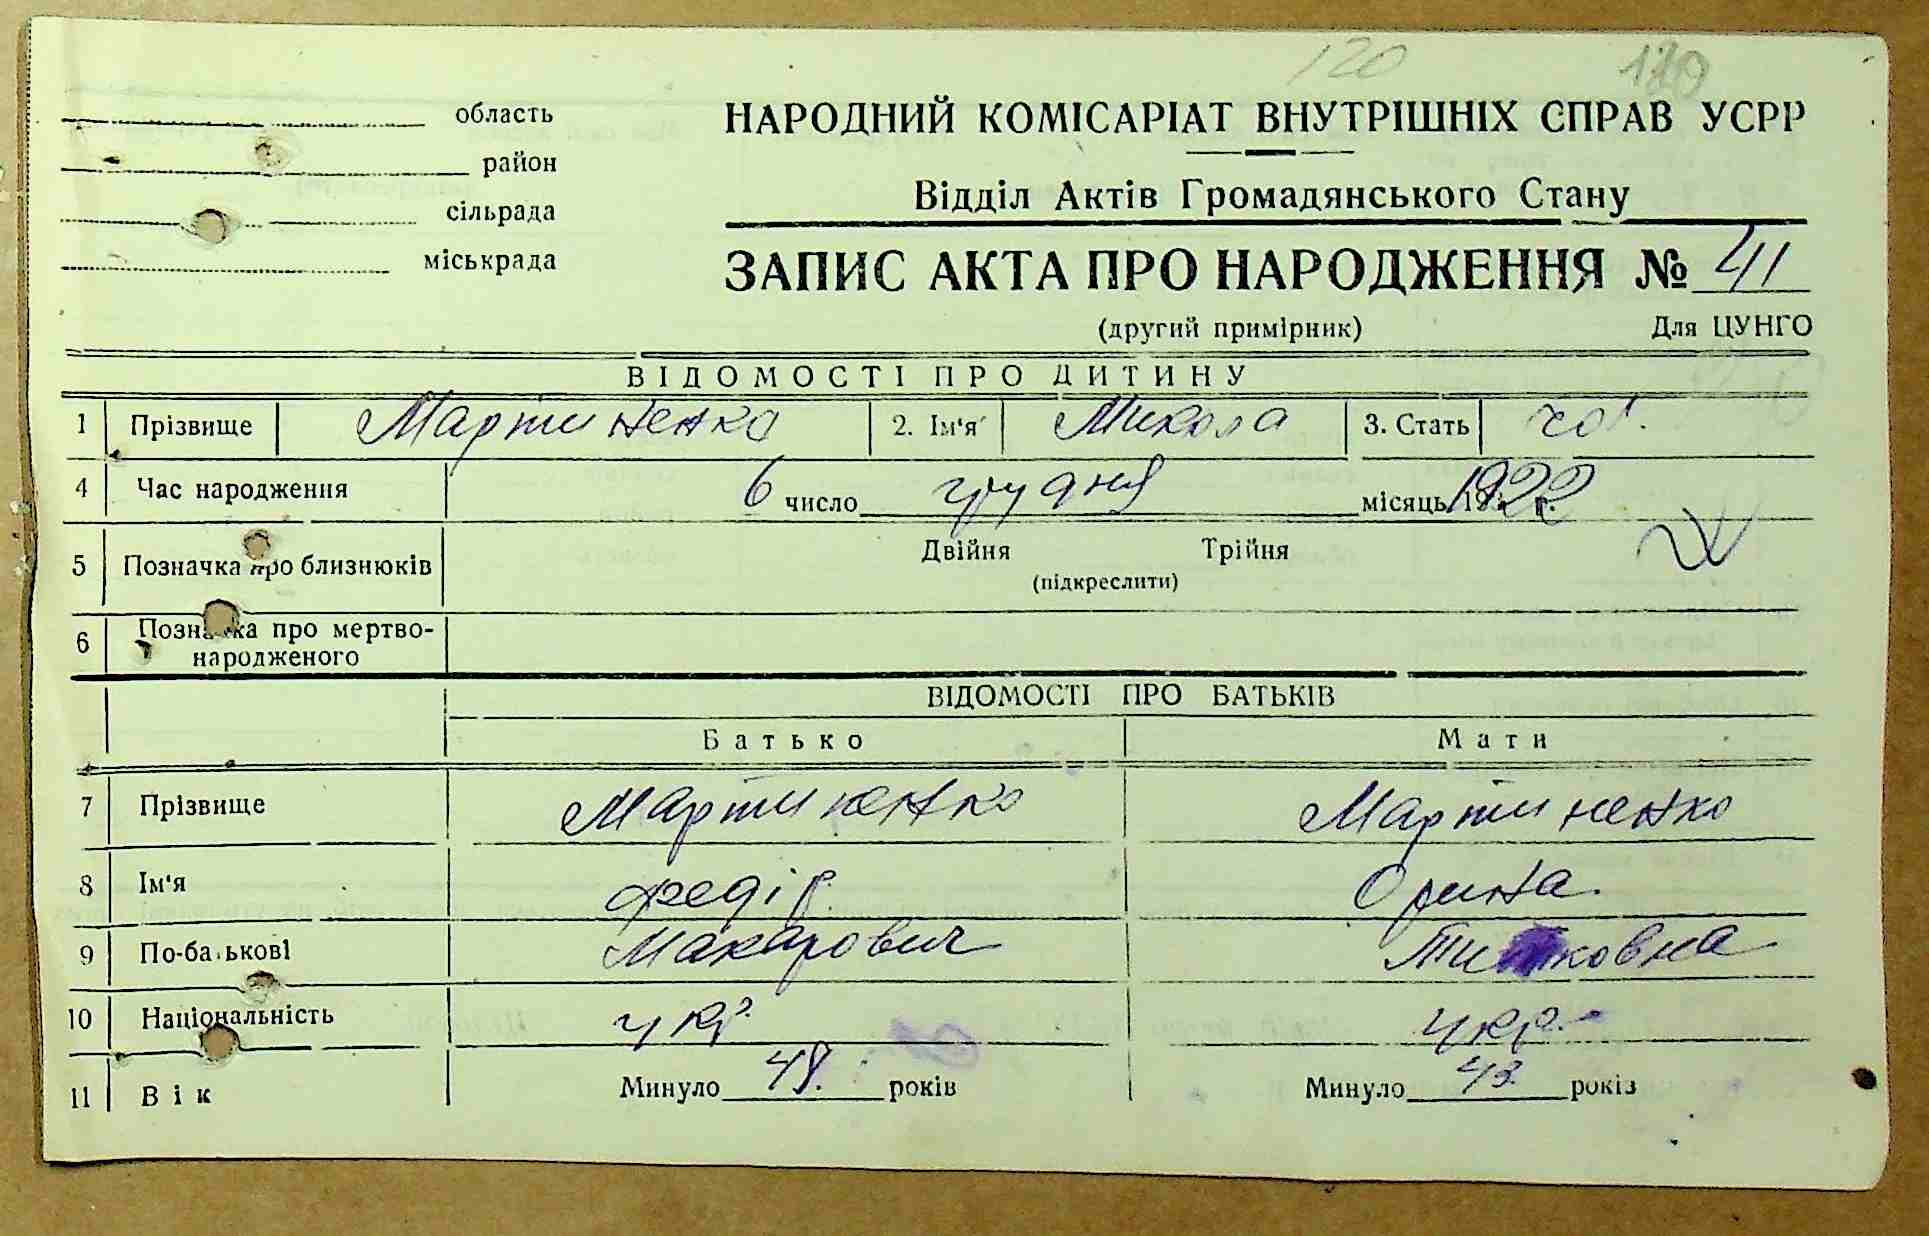 120 120
область
район
сільрада
міськрада
НАРОДНИЙ КОМІСАРІАТ ВНУТРІШНІХ СПРАВ УСРР
Відділ Актів Громадянського Стану
ЗАПИС АКТА ПРО НАРОДЖЕННЯ № 41
(другий примірник) Для ЦУНГО
ВІДОМОСТІ ПРО ДИТИНУ
1 Прізвище Мартиненко 2. Ім'я Микола 3. Стать чол.
4 Час народження 6 число грудня місяць 1922 р.
5 Позначка про близнюків Двійня Трійня
(підкреслити)
6 Позначка про мертво-
народженого
ВІДОМОСТІ ПРО БАТЬКІВ
Батько Мати
7 Прізвище Мартиненко Мартиненко
8 Ім'я Федір Орина
9 По-батькові Макарович
10 Національність укр. укр.
11 Вік Минуло 48 років Минуло 43 років